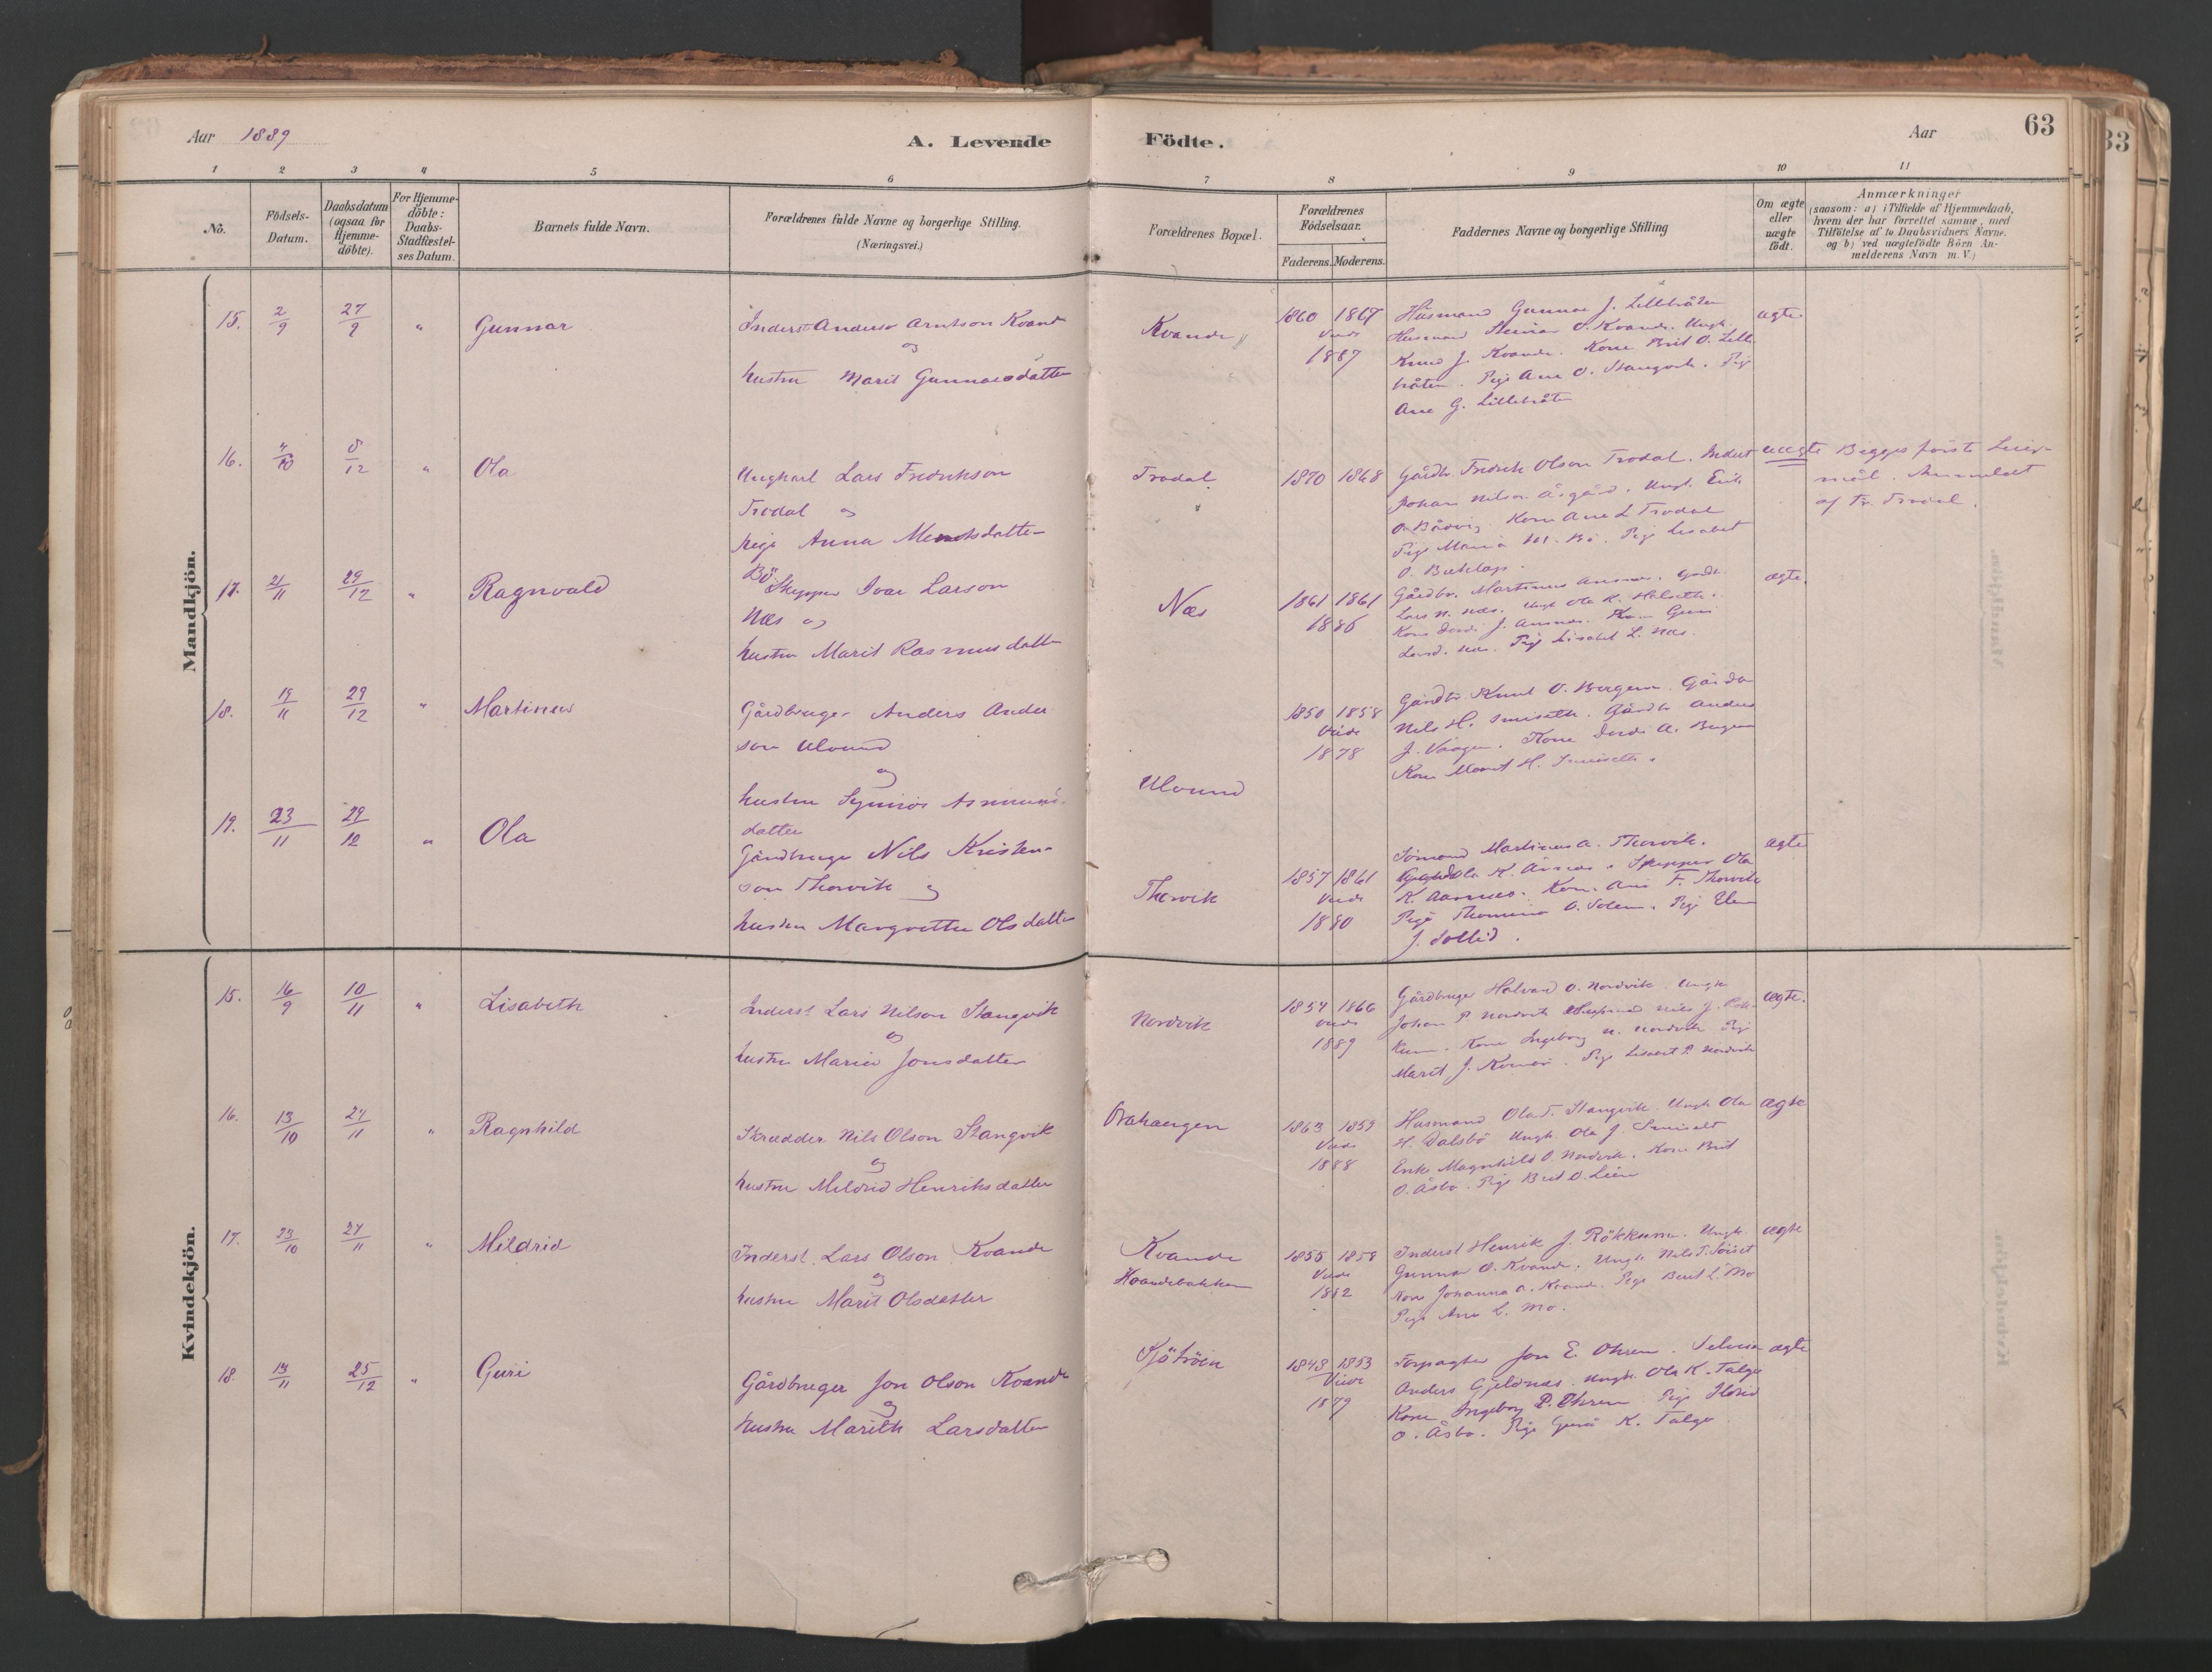 Aar 1889
A. Levende Födte.
Aar
63
33
1 2 3 4 5 6 7 8 9 10 11
No.
Födsels-Datum.
Daabsdatum (ogsaa for Hjemme-döbte).
For Hjemme-döbte: Daabs-Stadfæstel-ses Datum.
Barnets fulde Navn.
Forældrenes fulde Navne og borgerlige Stilling.
(Næringsvei.)
Forældrenes Bopæl.
Forældrenes Födselsaar.
Faderens. Moderens.
Faddernes Navne og borgerlige Stilling
Om ægte eller uægte födt.
Anmærkninger
(saasom: a) i Tilfælde af Hjemmedaab,
hvem der har forrettet samme, med
Tilföielse af to Daabsvidners Navne.
og b) ved uægtefödte Börn An-
melderens Navn m. V.)
Mandkjön.
15. 2/9 27/9 " Gunnar
Inderst Anders Arntson Kvand
og
hustru Marit Gunnarsdatter
Kvande
1860 1867
Viede
1887
Husmand Gunnar J. Lillebråten
Husmand Steinar O. Kvande. Ungk.
Knud J. Kvande. Kone Brit O. Lille
bråten. Pige Ane O. Stangvik. Pig
Ane G. Lillebråten
ægte
16. /10 8/12 " Ola
Ungkarl Lars Fredrikson
Trodal og
pige Anna Mentsdatter
Bö
Trodal
1870 1868
Gårdbr. Fredrik Olson Trodal. Inderst
Johan Nilson Åsgård. Ungk. Erik
O. Bådvig. Kone Ane L Trodal
Pige Maria M. Bö. Pige Lisabet
O.
uægte
Begges förste Leier-
mål. Anmeldt
af Fr. Trodal.
17. 21/11 29/12 " Ragnvald
Skipper Ivar Larson
Næs og
hustru Marit Rasmusdatter
Næs
1861 1861
1886
Gårdbr. Martinus Aasnes. Gårdb.
Lars N. Næs. Ungk Ola K. Halseth.
Kone Dordi J. Aasnes. Kone Guri
Larsd. Næs. Pige Lisabet L. Næs.
ægte.
18. 19/11 29/12 " Martinus
Gårdbruger Anders Ander
son Ulvund
og
hustru Synnöv Asmunds-
datter
Ulvund
1850 1858
Viede
1878
Gårdbr. Knut O. Bergem. Gårdbr
Nils H. Smiseth. Gårdbr Anders
J. Vaagen. Kone Dordi A. Bergem
Kone Marit H. Smiseth.
19. 23/11 29/12 " Ola
Gårdbruger Nils Kristen-
son Thorvik og
hustru Margrethe Olsdatter
Thorvik
1857 1861
Viede
1880
Sömand Martinus A. Thorvik.
Ola K. Årnes. Skipper Ola
K. Aarnes. Kone Ane F. Thorvik
Pige Thomina O. Solem. Pige Elen
J. Sollid.
ægte
Kvindekjön.
15. 16/9 10/11 " Lisabeth
Inderst Lars Nilson Stangvik
og
hustru Marie Jonsdatter
Nordvik
1854 1866
Viede
1889
Gårdbruger Halvard O. Nordvik. Ungk
Johan P Nordvik Husmand Nils J. Rök-
kum. Kone Ingeborg N. Nordvik Pige
Marit J. . Pige Lisabet P. Nordvik
ægte.
16. 13/10 24/11 " Ragnhild
Skrædder Nils Olson Stangvik
og
hustru Mildrid Henriksdatter
Orahaugen
1863 1859
Viede
1888
Husmand Ola T. Stangvik. Ungk. Ola
H. Dalsbö Ungk. Ola J. Smiset
Enke Magnhild O. Nordvik. Kone Brit
O. Åsbö. Pige Brit O. Lien
ægte
17. 23/10 24/11 " Mildrid
Inderst. Lars Olson Kvande
og
hustru Marit Olsdatter
Kvande
Kvandebakken
1855 1858
Viede
1882
Inderst Henrik J. Rökkum. Ungk.
Gunnar O. Kvande. Ungk. Nils T. Söiset
Kone Johanna O. Kvande. Pige Berit L. Mo
Pige Ane L. Mo.
ægte
18. 13/11 25/12 " Guri
Gårdbruger Jon Olson Kvande
og
hustru Marith Larsdatter
1848 1853
Viede
1879
Forpagter Jon E. Ohren. Selveier
Anders Gjeldnæs. Ungk. Ola K. Talgö
Kone Ingeborg P. Ohren Pige Ildrid
O. Åsbö. Pige Guri K. Talgö
ægte